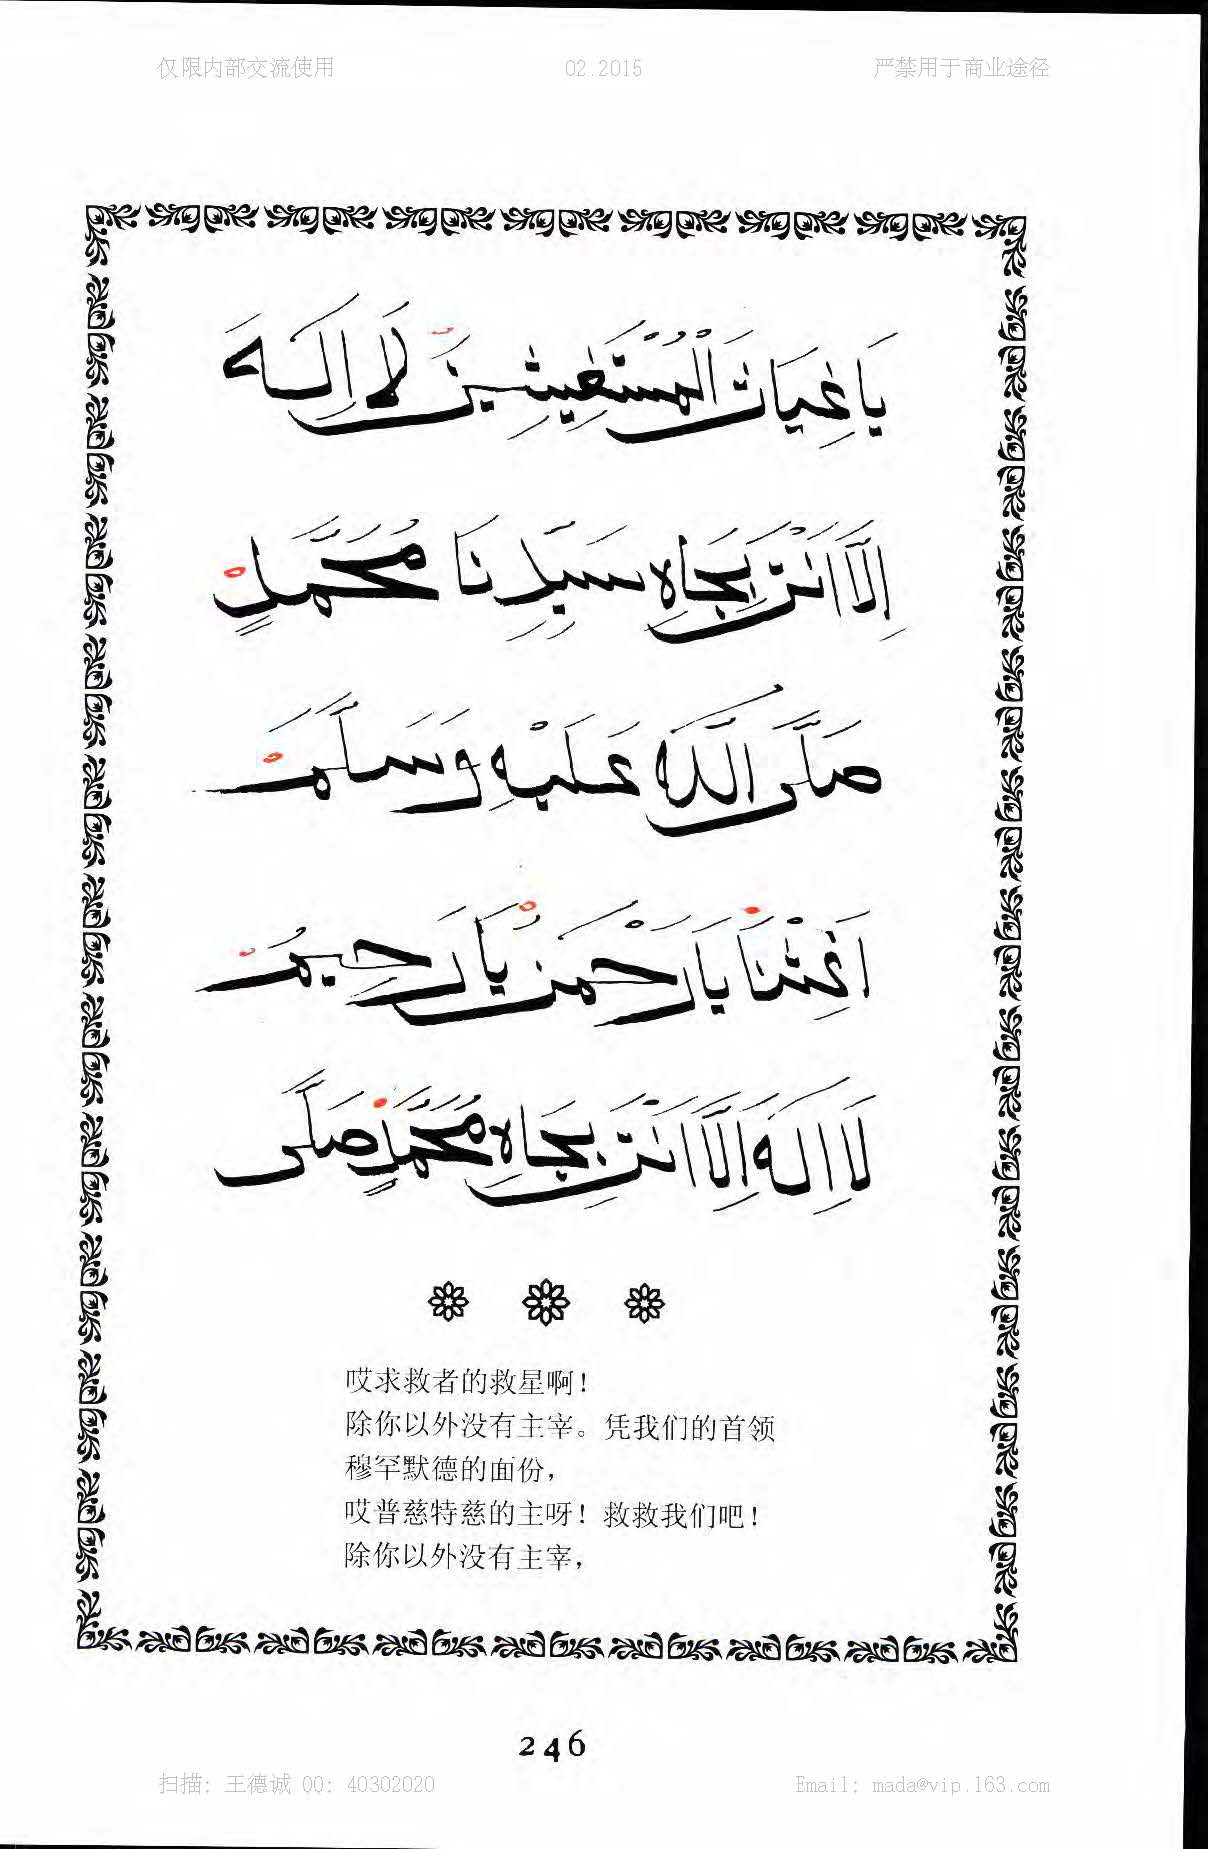 仅限内部交流使用 02.2015 严禁用于商业途径
يَا غِيَاثَ الْمُسْتَغِيثِينَ لَا اِلَهَ
اِلَّا اَنْتَ بِجَاهِ سَيِّدِنَا مُحَمَّدٍ
صَلَّى اللَّهُ عَلَيْهِ وَسَلَّمَ
اَغِثْنَا يَا رَحْمَنُ يَا رَحِيمُ
لَا اِلَهَ اِلَّا اَنْتَ بِجَاهِ مُحَمَّدٍ صَلَّى
哎求救者的救星啊!
除你以外没有主宰。凭我们的首领
穆罕默德的面份,
哎普慈特慈的主呀!救救我们吧!
除你以外没有主宰,
246
扫描: 王德诚 QQ: 40302020 Email: mada@vip.163.com